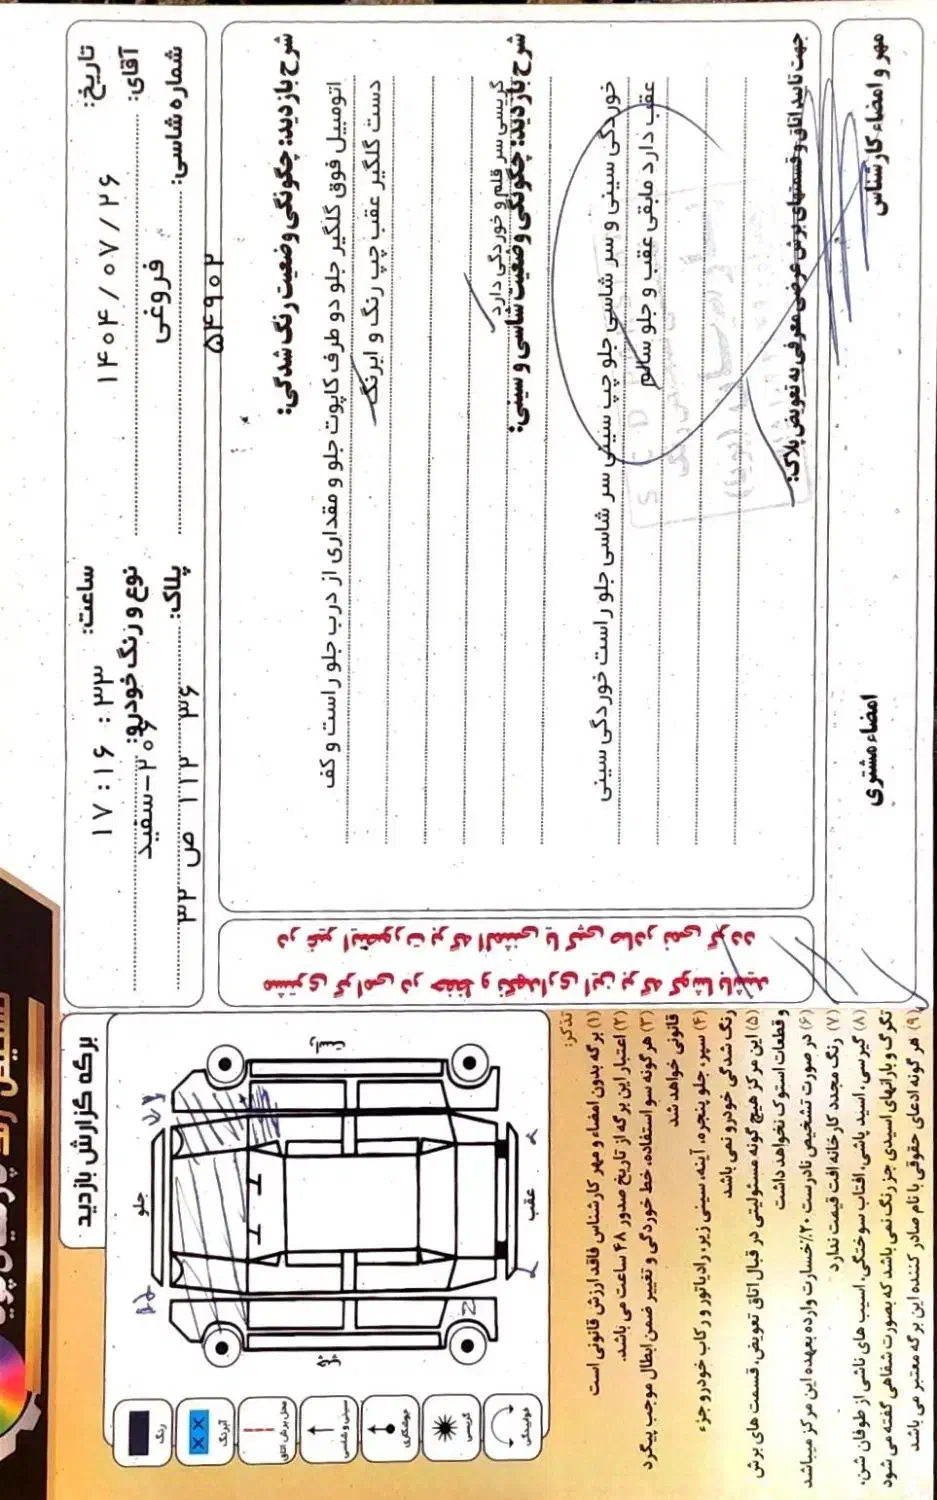 برگه گزارش بازدید
تاریخ: ۱۴۰۴/۰۷/۲۶
ساعت: ۱۷:۱۶:۳۳
آقای: فروغی
نوع و رنگ خودرو: ۲۰۶-سفید
شماره شاسی: ۵۴۹۰۲
پلاک: ۳۳ ص ۱۱۲ ۳۶
شرح بازدید: چگونگی وضعیت رنگ شدگی:
اتومبیل فوق گلگیر جلو دو طرف کاپوت جلو و مقداری از درب جلو راست و کف
دست گلگیر عقب چپ رنگ و ابرنگ
شرح بازدید: چگونگی وضعیت شاسی و سینی:
گریسی سر قلم و خوردگی دارد
خوردگی سینی و سر شاسی جلو چپ سینی سر شاسی جلو راست خوردگی سینی
عقب دارد مابقی عقب و جلو سالم
جهت تایید اتاق و قسمتهای برش عرضی معرفی به تعویض پلاک:
مهر و امضاء کارشناس
امضاء مشتری
مشتری گرامی در حفظ و نگهداری این برگه کوشا باشید
در غیر اینصورت برگه المثنی یا کپی صادر نمی گردد
جلو
عقب
راست
چپ
رنگ
آبرنگ
محل برش اتاق
سینی و شاسی
جوشکاری
گریسی
خوردگی
تذکر:
(۱) برگه بدون امضاء و مهر کارشناس فاقد ارزش قانونی است
(۲) اعتبار این برگه از تاریخ صدور ۴۸ ساعت می باشد.
(۳) هر گونه سو استفاده، خط خوردگی و تغییر ضمن ابطال موجب پیگرد
قانونی خواهد شد
(۴) سپر، جلو پنجره، آینه، سینی زیر، رادیاتور و رکاب خودرو جزء
رنگ شدگی خودرو نمی باشد
(۵) این مرکز هیچ گونه مسئولیتی در قبال اتاق تعویض، قسمت های برش
و قطعات استوک نخواهد داشت
(۶) در صورت تشخیص نادرست ۲۰٪ خسارت وارده بعهده این مرکز میباشد
(۷) رنگ مجدد کارخانه افت قیمت ندارد
(۸) گیرسی، اسید پاشی، افتاب سوختگی، اسیب های ناشی از طوفان شن،
تگرگ و بارانهای اسیدی جز رنگ نمی باشد که بصورت شفاهی گفته می شود
(۹) هر گونه ادعای حقوقی با نام صادر کننده این برگه معتبر می باشد